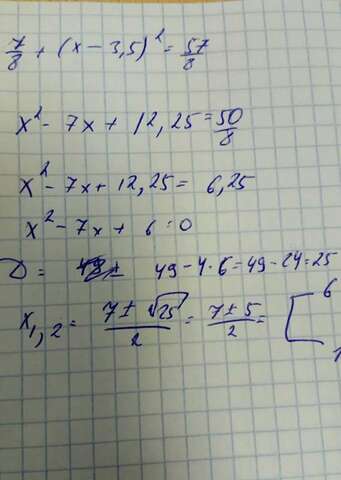 7/8 + (x − 3,5)² = 57/8
x² − 7x + 12,25 = 50/8
x² − 7x + 12,25 = 6,25
x² − 7x + 6 = 0
D = 49 − 4·6 = 49 − 24 = 25
x₁,₂ = (7 ± √25)/2 = (7 ± 5)/2 = [ 6
1